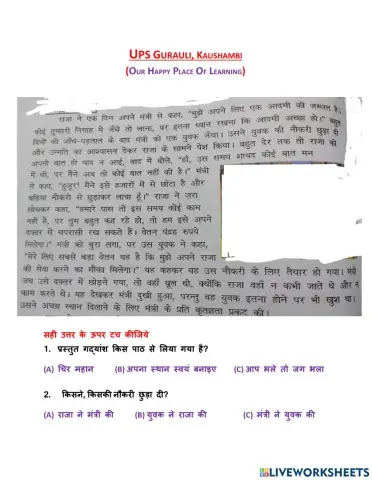 UPS GURAULI, KAUSHAMBI
(OUR HAPPY PLACE OF LEARNING)
राजा ने एक दिन अपने मंत्री से कहा, "मुझे अपने लिए एक आदमी की जरूरत है।
कोई तुम्हारी निगाह में जँचे तो लाना, पर इतना ध्यान रखना कि आदमी अच्छा हो।" बहुत
दिनों की जाँच-पड़ताल के बाद मंत्री को एक युवक जँचा। उसने युवक की नौकरी छुड़ा दी
और उन्नति का आश्वासन देकर राजा के सामने पेश किया। बहुत देर तक तो राजा को
अपनी बात ही याद न आई, बाद में बोले, "हाँ, उस समय शायद कोई बात मन
में थी, पर मैंने अब तो कोई बात नहीं की है।" मंत्री
ने कहा, "हुजूर! मैंने इसे हजारों में से छाँटा है और
बढ़िया नौकरी से छुड़ाकर लाया हूँ।" राजा ने जरा
सोचकर कहा, "हमारे पास तो इस समय कोई काम
नहीं है, पर तुम बहुत कह रहे हो, तो हम इसे अपने
दफ्तर में चपरासी रख सकते हैं। वेतन पंद्रह रुपये
मिलेगा।" मंत्री को बुरा लगा, पर उस युवक ने कहा,
"मेरे लिए सबसे बड़ा वेतन यह है कि मुझे अपने राजा
की सेवा करने का मौका मिलेगा।" यह कहकर वह उस नौकरी के लिए तैयार हो गया। मंत्री
जब उसे दफ्तर में छोड़ने गया, तो वहाँ धूल थी, क्योंकि राजा वहाँ न कभी जाते थे और न
काम करते थे। यह देखकर मंत्री दुखी हुआ, परन्तु वह युवक इतना होने पर भी खुश था।
उसने अच्छा स्थान दिलाने के लिए मंत्री के प्रति कृतज्ञता प्रकट की।
सही उत्तर के ऊपर टच कीजिये
1. प्रस्तुत गद्यांश किस पाठ से लिया गया है?
(A) चिर महान (B) अपना स्थान स्वयं बनाइए (C) आप भले तो जग भला
2. किसने, किसकी नौकरी छुड़ा दी?
(A) राजा ने मंत्री की (B) युवक ने राजा की (C) मंत्री ने युवक की
LIVEWORKSHEETS